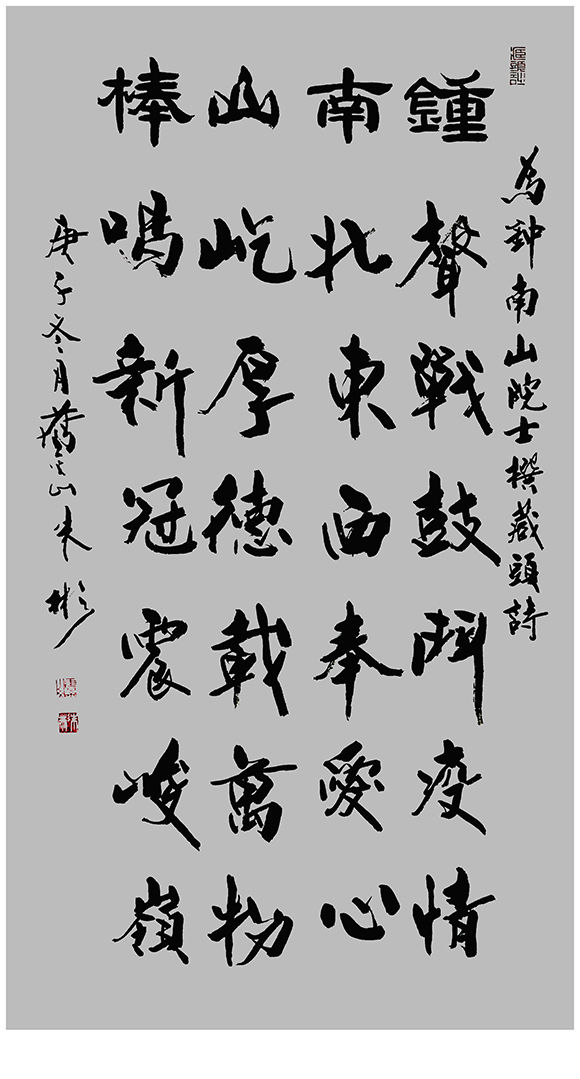 為鈡南山院士撰藏頭詩
鍾聲戰鼓鬥疫情
南北東西奉愛心
山屹厚德載萬物
棒鳴新冠震峻嶺
庚子冬月山朱彬